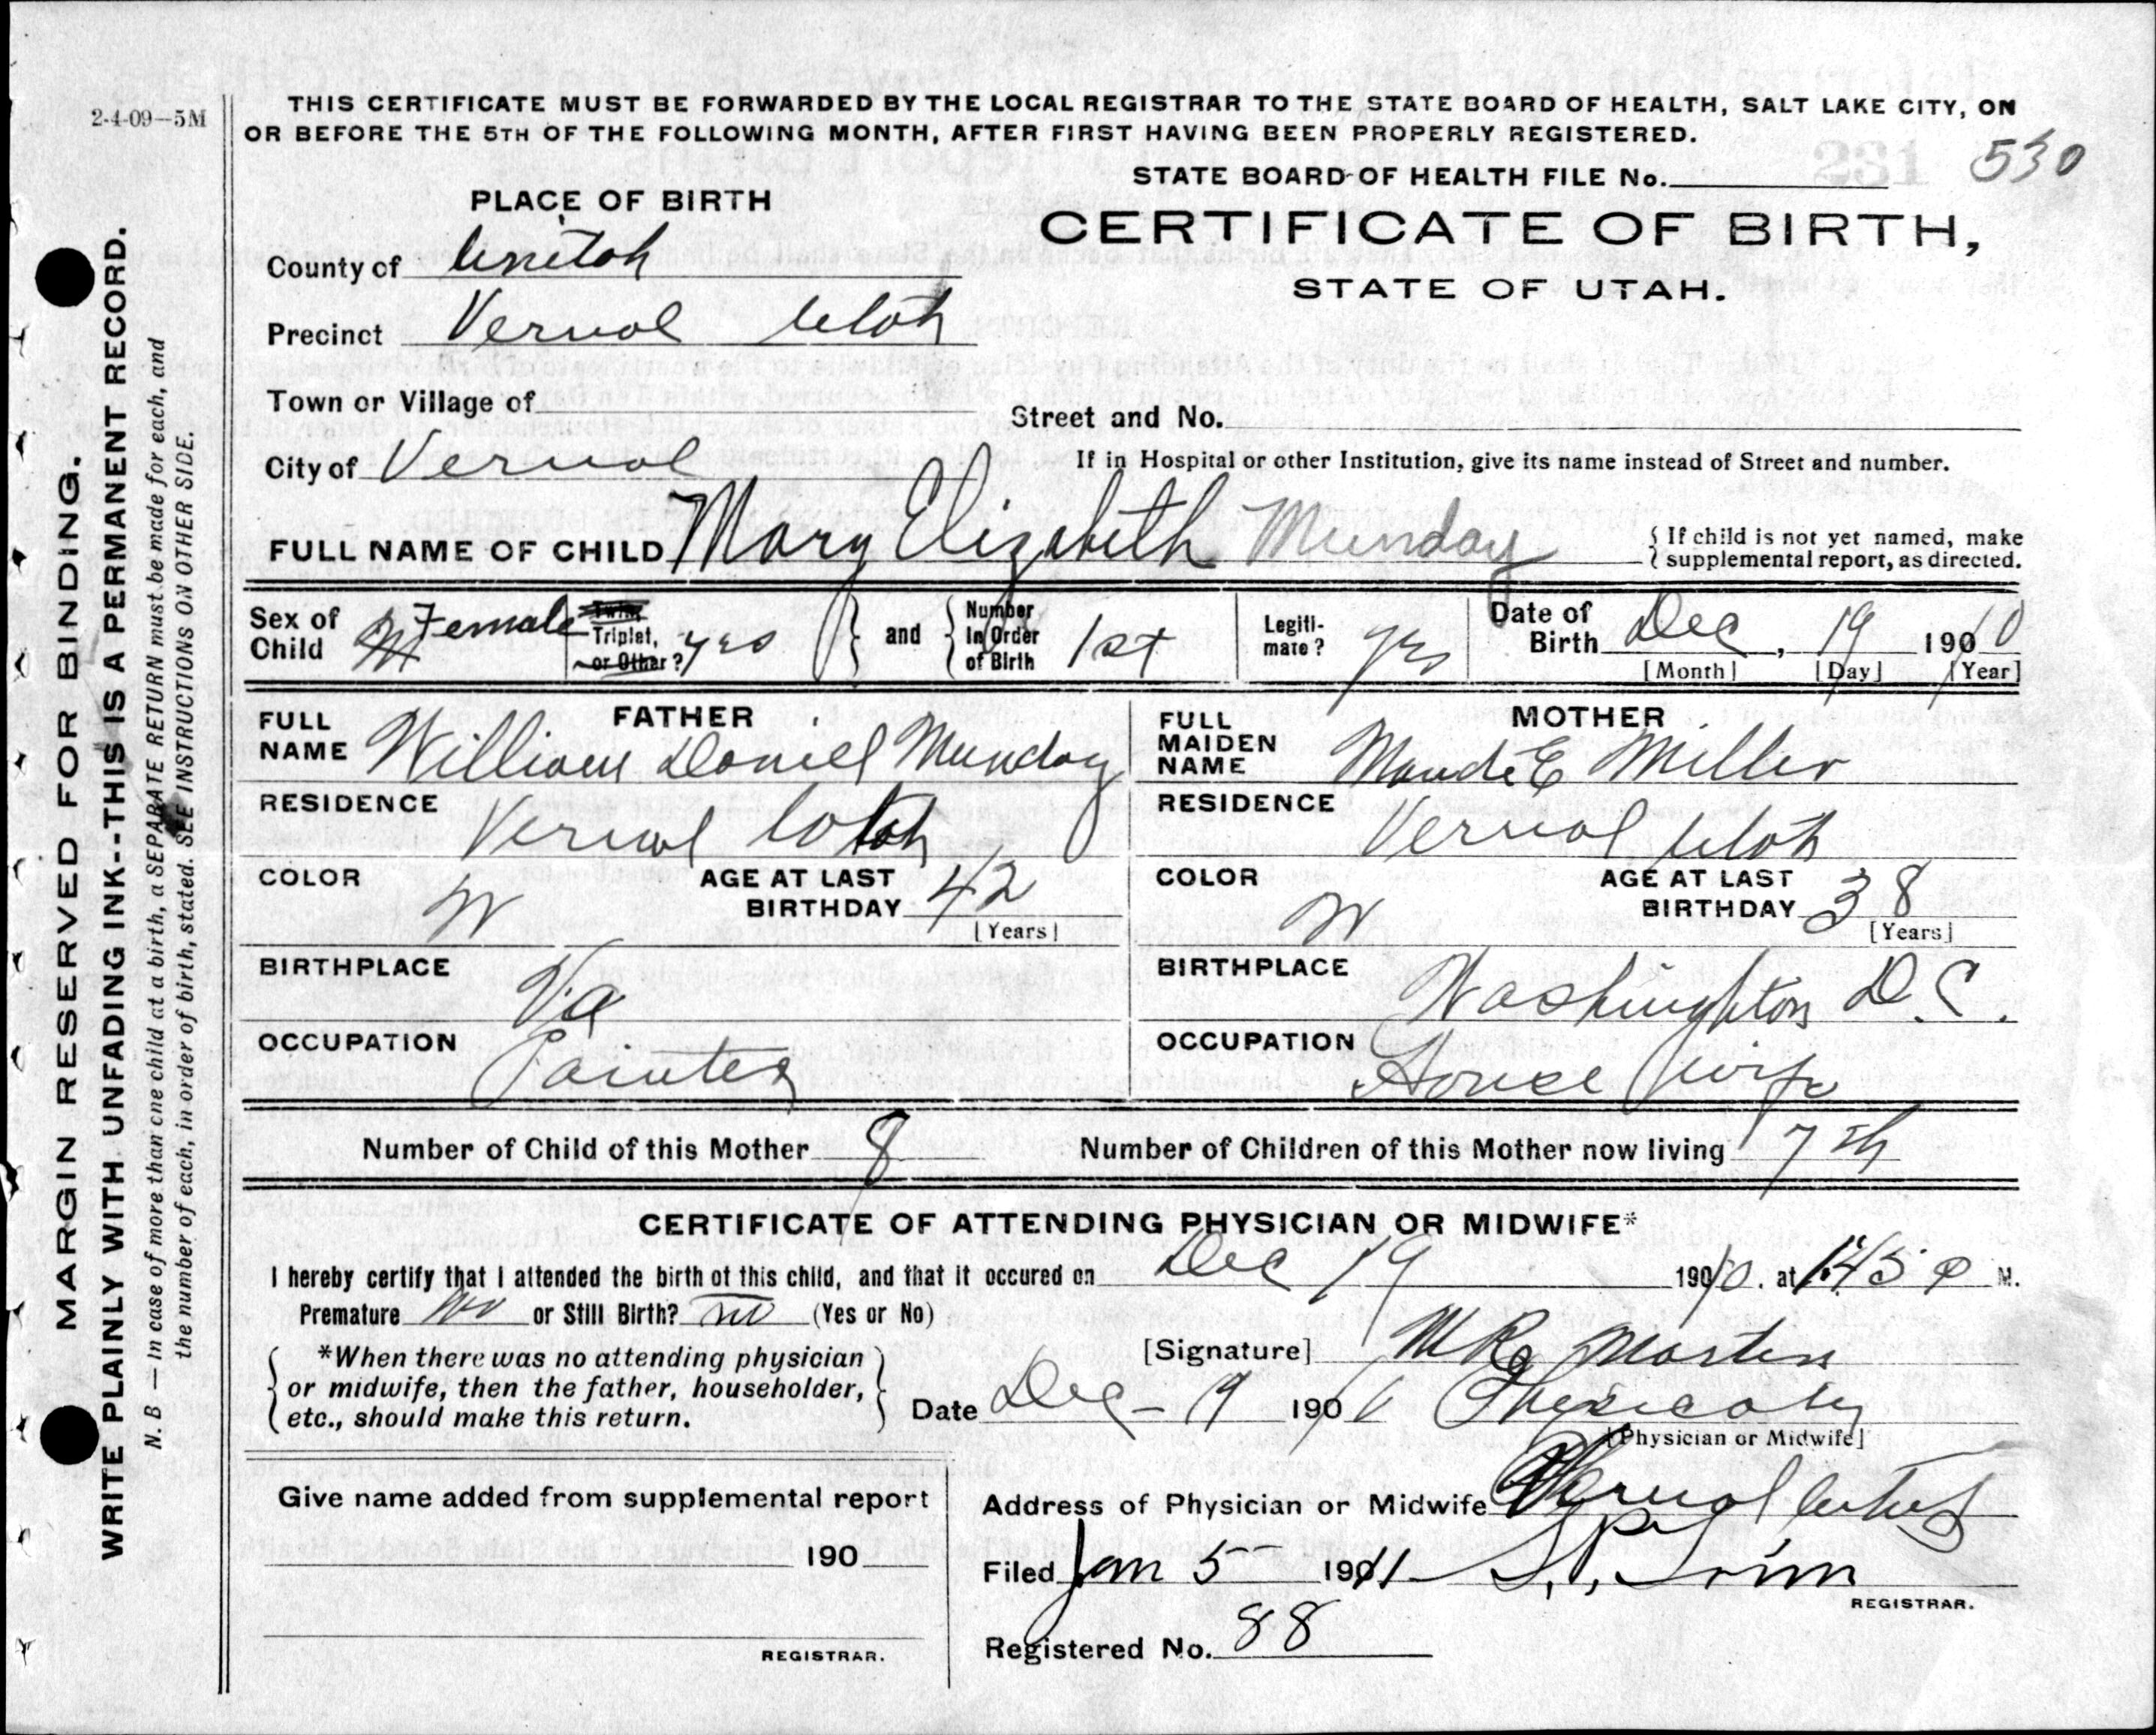 2-4-09—5M
THIS CERTIFICATE MUST BE FORWARDED BY THE LOCAL REGISTRAR TO THE STATE BOARD OF HEALTH, SALT LAKE CITY, ON
OR BEFORE THE 5TH OF THE FOLLOWING MONTH, AFTER FIRST HAVING BEEN PROPERLY REGISTERED.
STATE BOARD OF HEALTH FILE No. 231 530
PLACE OF BIRTH
CERTIFICATE OF BIRTH,
STATE OF UTAH.
County of
Precinct Vernal Utah
Town or Village of
Street and No.
City of Vernal
If in Hospital or other Institution, give its name instead of Street and number.
FULL NAME OF CHILD Mary Elizabeth Munday
{ If child is not yet named, make
{ supplemental report, as directed.
Sex of Child M Female
Twin, Triplet, or Other? yes } and { Number In Order of Birth 1st
Legiti-mate? yes
Date of Birth Dec, 19 1910
[Month] [Day] [Year]
FATHER
FULL NAME William Daniel Munday
RESIDENCE Vernal Utah
COLOR W AGE AT LAST BIRTHDAY 42
[Years]
BIRTHPLACE Va
OCCUPATION Painter
MOTHER
FULL MAIDEN NAME Maude E Miller
RESIDENCE Vernal Utah
COLOR W AGE AT LAST BIRTHDAY 38
[Years]
BIRTHPLACE Washington D.C.
OCCUPATION House Wife
Number of Child of this Mother 8 Number of Children of this Mother now living 7th
CERTIFICATE OF ATTENDING PHYSICIAN OR MIDWIFE*
I hereby certify that I attended the birth of this child, and that it occured on Dec 19 1910. at 1:45 P M.
Premature No or Still Birth? no (Yes or No)
*When there was no attending physician
or midwife, then the father, householder,
etc., should make this return.
[Signature]
Date Dec - 19 1910
[Physician or Midwife]
Address of Physician or Midwife Vernal Utah
Filed Jan 5 1911
REGISTRAR.
Registered No. 88
Give name added from supplemental report
190
REGISTRAR.
MARGIN RESERVED FOR BINDING.
WRITE PLAINLY WITH UNFADING INK--THIS IS A PERMANENT RECORD.
N. B — In case of more than one child at a birth, a SEPARATE RETURN must be made for each, and
the number of each, in order of birth, stated. SEE INSTRUCTIONS ON OTHER SIDE.